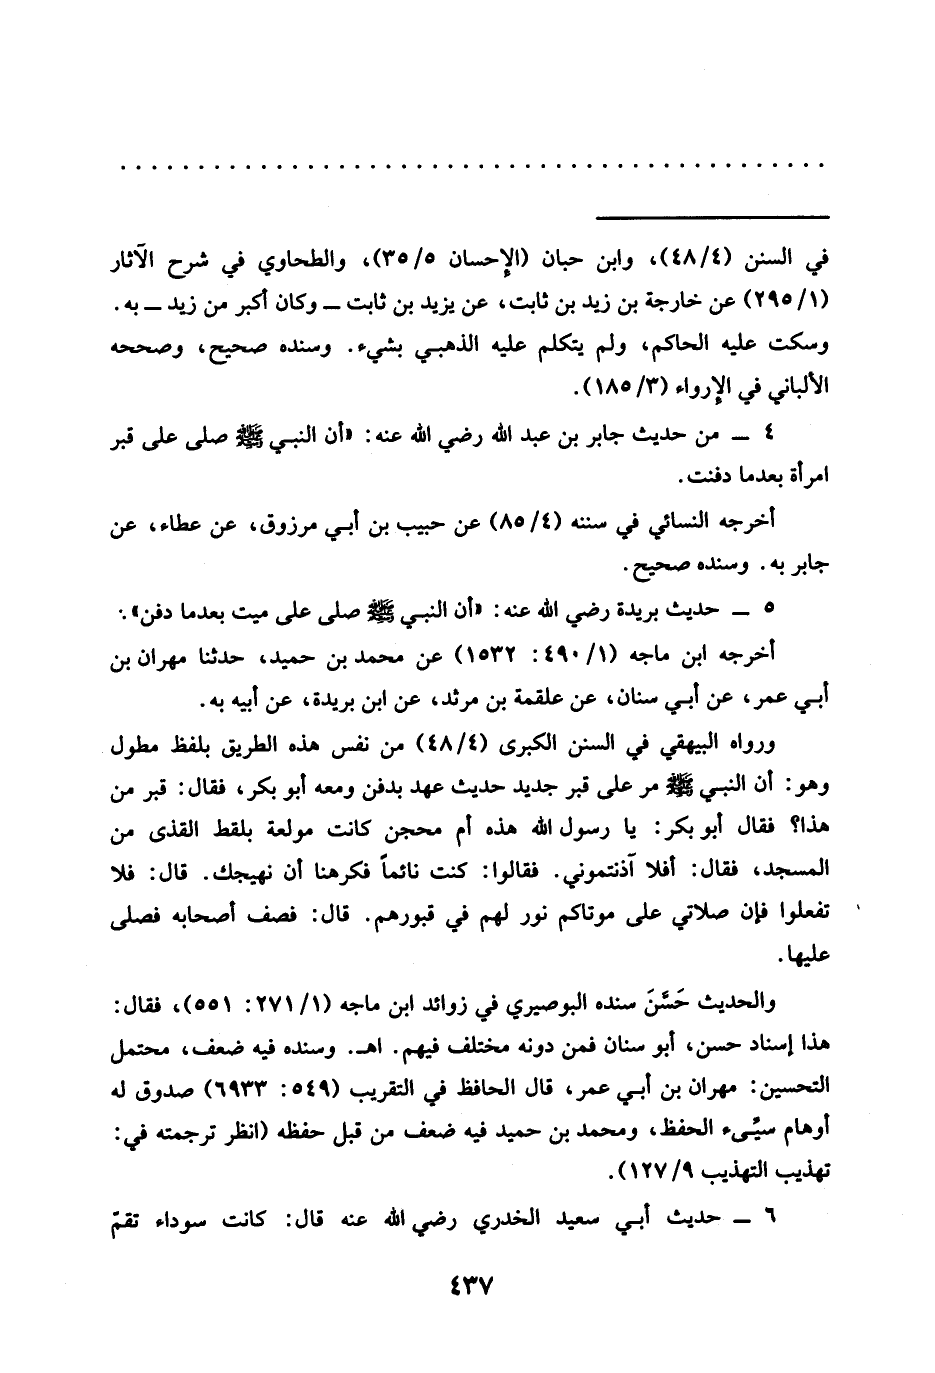 . . . . . . . . . . . . . . . . . . . . . . . . . . . . . . . . . . . . . . . . . . . . . .
في السنن (٤/٤٨)، وابن حبان (الإحسان ٥/٣٥)، والطحاوي في شرح الآثار
(١/٢٩٥) عن خارجة بن زيد بن ثابت، عن يزيد بن ثابت ــ وكان أكبر من زيد ــ به.
وسكت عليه الحاكم، ولم يتكلم عليه الذهبـي بشيء. وسنده صحيح، وصححه
الألباني في الإرواء (٣/١٨٥).
٤ ــ من حديث جابر بن عبد الله رضي الله عنه: «أن النبـي ﷺ صلى على قبر
امرأة بعدما دفنت.
أخرجه النسائي في سننه (٤/٨٥) عن حبيب بن أبـي مرزوق، عن عطاء، عن
جابر به. وسنده صحيح.
٥ ــ حديث بريدة رضي الله عنه: «أن النبـي ﷺ صلى على ميت بعدما دفن».
أخرجه ابن ماجه (١/٤٩٠: ١٥٣٢) عن محمد بن حميد، حدثنا مهران بن
أبـي عمر، عن أبـي سنان، عن علقمة بن مرثد، عن ابن بريدة، عن أبيه به.
ورواه البيهقي في السنن الكبرى (٤/٤٨) من نفس هذه الطريق بلفظ مطول
وهو: أن النبـي ﷺ مر على قبر جديد حديث عهد بدفن ومعه أبو بكر، فقال: قبر من
هذا؟ فقال أبو بكر: يا رسول الله هذه أم محجن كانت مولعة بلقط القذى من
المسجد، فقال: أفلا آذنتموني. فقالوا: كنت نائماً فكرهنا أن نهيجك. قال: فلا
تفعلوا فإن صلاتي على موتاكم نور لهم في قبورهم. قال: فصف أصحابه فصلى
عليها.
والحديث حَسَّنَ سنده البوصيري في زوائد ابن ماجه (١/٢٧١: ٥٥١)، فقال:
هذا إسناد حسن، أبو سنان فمن دونه مختلف فيهم. اهـ. وسنده فيه ضعف، محتمل
التحسين: مهران بن أبـي عمر، قال الحافظ في التقريب (٥٤٩: ٦٩٣٣) صدوق له
أوهام سيِّىء الحفظ، ومحمد بن حميد فيه ضعف من قبل حفظه (انظر ترجمته في:
تهذيب التهذيب ٩/١٢٧).
٦ ــ حديث أبـي سعيد الخدري رضي الله عنه قال: كانت سوداء تقمّ
٤٣٧